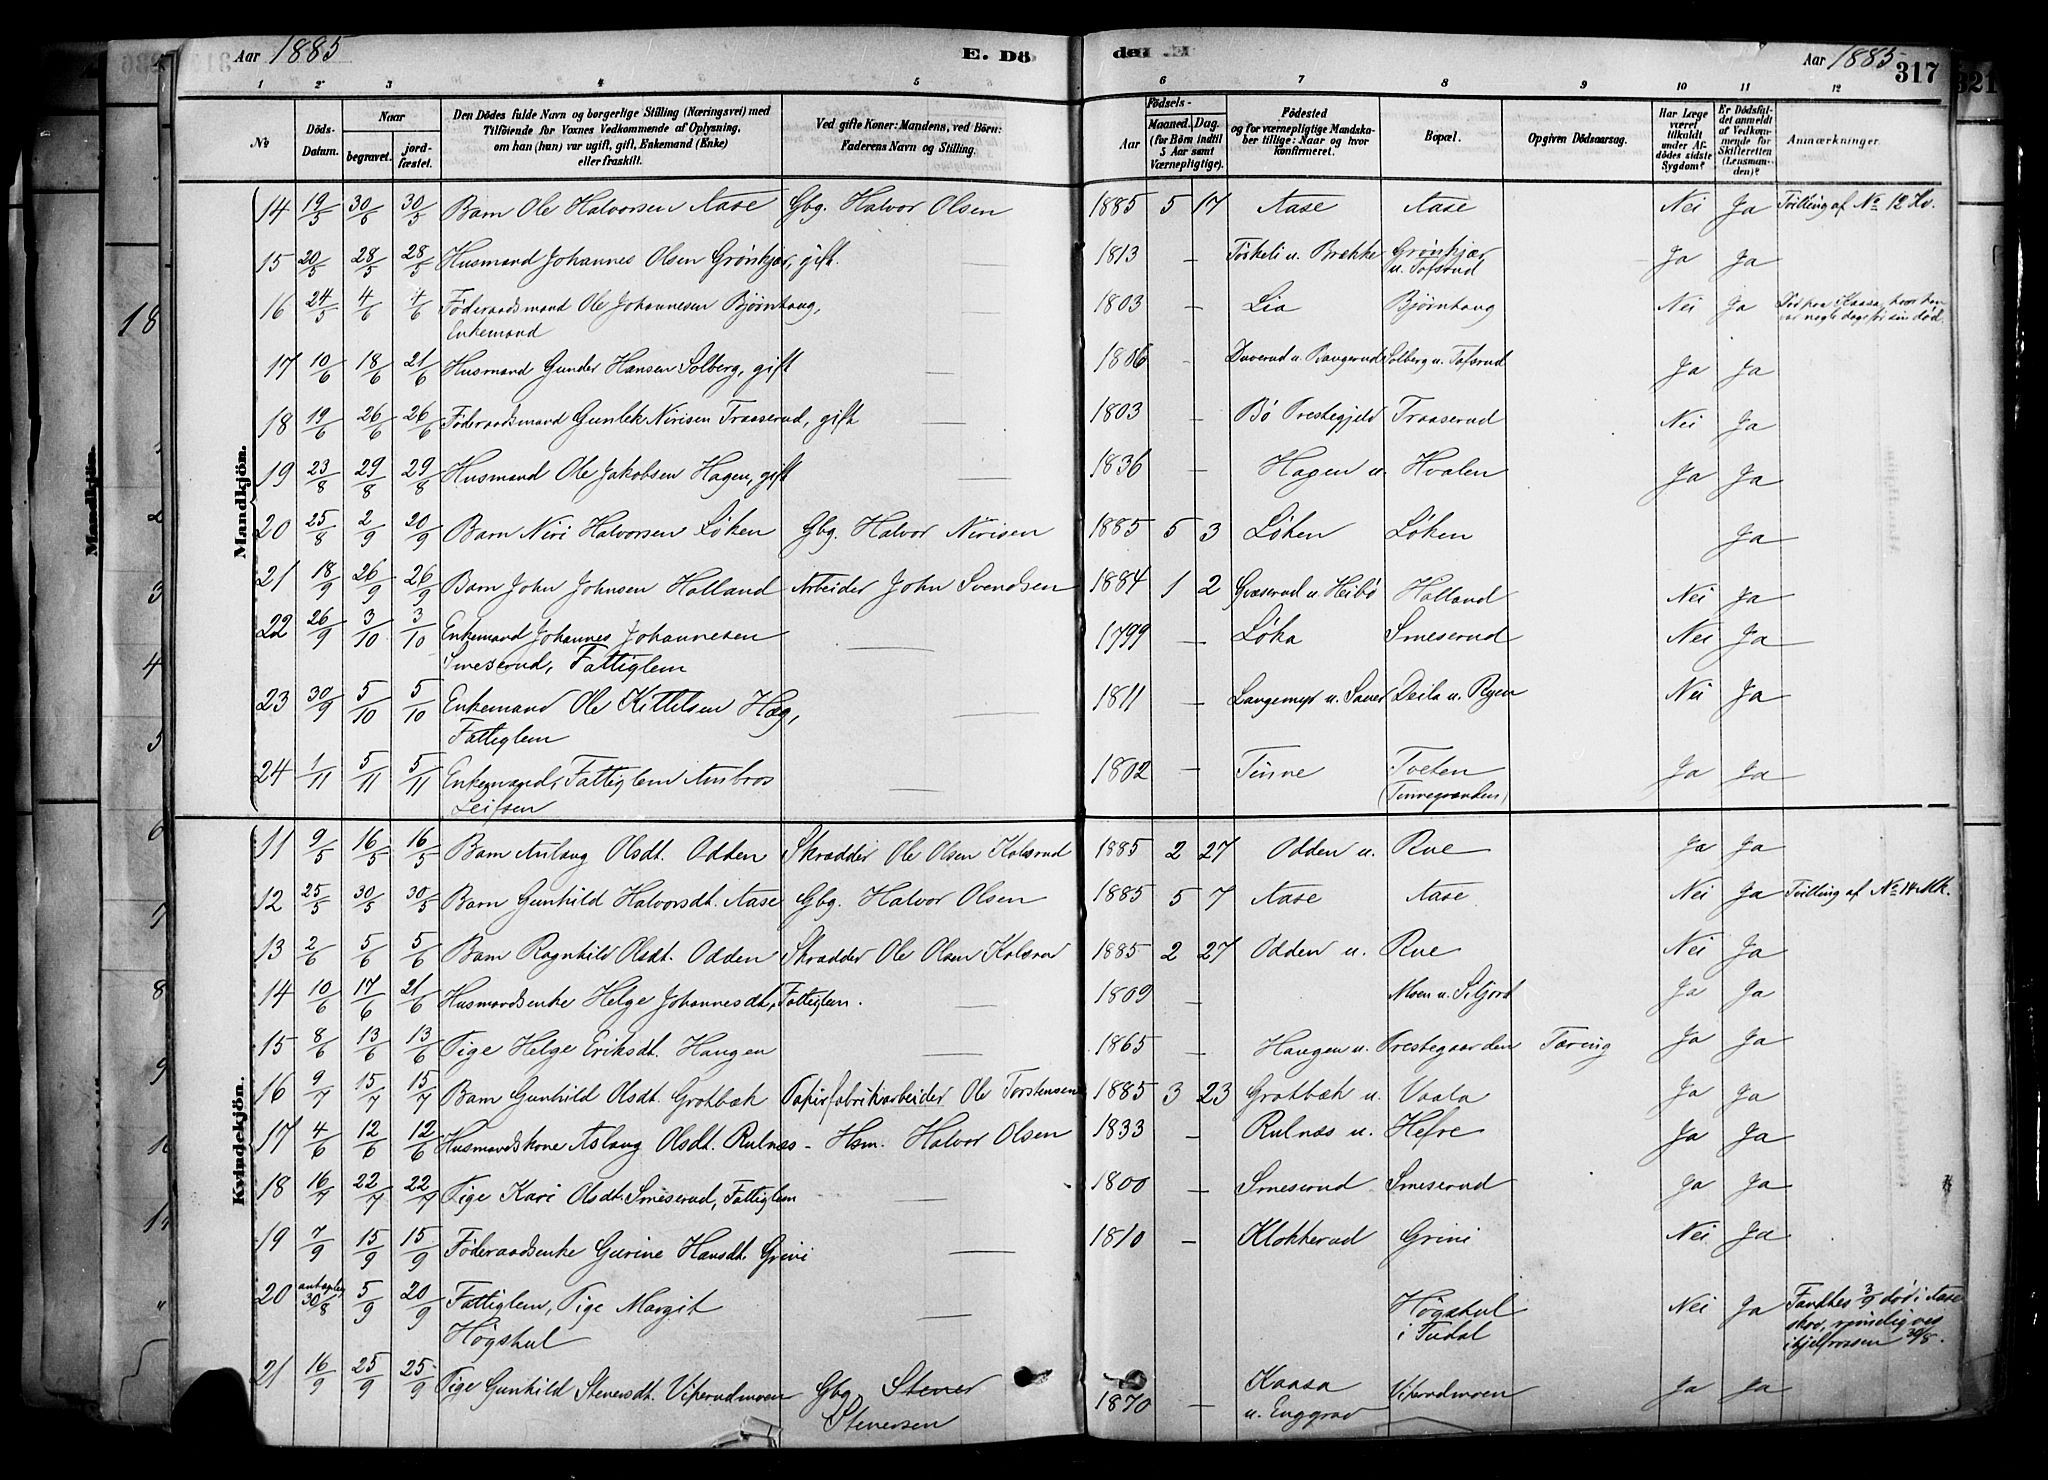 Aar 1885 E. Dö
den E. Aar 1885 317
1 2 3 4 5 6 7 8 9 10 11 12
No Döds-Datum. Naar begravet. jordfæstet. Den Dödes fulde Navn og borgerlige Stilling (Næringsvei) med Tilföiende for Voxnes Vedkommende af Oplysning, om han (hun) var ugift, gift, Enkemand (Enke) eller fraskilt. Ved gifte Koner: Mandens, ved Börn: Faderens Navn og Stilling. Födsels- Aar Maaned. Dag. (for Börn indtil 5 Aar samt Værnepligtige). Födested og for værnepligtige Mandskaber tillige: Naar og hvor konfirmeret. Bopæl. Opgiven Dödsaarsag. Har Læge været tilkaldt under Afdödes sidste Sygdom? Er Dödsfaldet anmeldt af Vedkommende for Skifteretten (Lensmanden)? Anmærkninger.
Mandkjön.
14 19/5 30/5 30/5 Barn Ole Halvorsen Aase Gbg. Halvor Olsen 1885 5 17 Aase Aase Nei Ja Tvilling af No 12 Kv.
15 20/5 28/5 28/5 Husmand Johannes Olsen Grønkjær, gift. — 1813 — Torkeli u. Brække Grønkjær u. Tofsrud Ja Ja
16 24/5 4/6 4/6 Føderaadsmand Ole Johannesen Bjørnhaug, Enkemand — 1803 — Lia Bjørnhaug Nei Ja Død paa Kaasa, hvor han var nogle dage før sin død.
17 10/6 18/6 21/6 Husmand Gunder Hansen Solberg, gift — 1806 — Duverud u. Baugerud Solberg u. Tofsrud Ja Ja
18 19/6 26/6 26/6 Føderaadsmand Gunlek Nirisen Traaserud, gift — 1803 — Bø Prestegjeld Traaserud Nei Ja
19 23/8 29/8 29/8 Husmand Ole Jakobsen Hagen, gift — 1836 — Hagen u. Hvalen Ja Ja
20 25/8 2/9 20/9 Barn Niri Halvorsen Løken Gbg. Halvor Nirisen 1885 5 3 Løken Løken Ja
21 18/9 26/9 26/9 Barn John Johnsen Holland Arbeider John Svendsen 1884 1 2 Gvaserud u Heibø Holland Nei Ja
22 26/9 3/10 3/10 Enkemand Johannes Johannesen Smeserud, Fattiglem — 1799 — Løka Smeserud Nei Ja
23 30/9 5/10 5/10 Enkemand Ole Kittelsen Hæg, Fattiglem — 1811 — Langemyr u. Sauer Deila u. Ryen Nei Ja
24 1/11 5/11 5/11 Enkemand, Fattiglem Ambros Leifsen — 1802 — Tinne Tveten (Tinnegranden) Ja Ja
Kvindekjön.
11 9/5 16/5 16/5 Barn Aslaug Olsdt. Odden Skrædder Ole Olsen Kolsrud 1885 2 27 Odden u. Rue Ja Ja
12 25/5 30/5 30/5 Barn Gunhild Halvorsdt. Aase Gbg. Halvor Olsen 1885 5 7 Aase Aase. Nei Ja Tvilling af No 14 Mk.
13 2/6 5/6 5/6 Barn Ragnhild Olsdt. Odden Skrædder Ole Olsen Kolsrud 1885 2 27 Odden u. Rue Nei Ja
14 10/6 17/6 21/6 Husmandsenke Helge Johannesdt, Fattiglem. — 1809 — Moen u. Seljord Ja Ja
15 8/6 13/6 13/6 Pige Helge Eriksdt. Haugen — 1865 — Haugen u. Prestegaarden Tæring Ja Ja
16 9/7 15/7 15/7 Barn Gunhild Olsdt. Grotbæk Papirfabrikarbeider Ole Torstensen 1885 3 23 Grotbæk u. Vaala Ja Ja
17 4/6 12/6 12/6 Husmandskone Aslaug Olsdt. Rulnæs - Hsm. Halvor Olsen 1833 — Rulnæs u. Hefre Ja Ja
18 16/7 22/7 22/7 Pige Kari Olsdt. Smeserud, Fattiglem — 1800 — Smeserud Smeserud Ja Ja
19 7/9 15/9 15/9 Føderaadsenke Gurine Hansdt. Grini — 1810 — Klokkerud Grini Nei Ja
20 antagelig 30/8 5/9 20/9 Fattiglem, Pige Margit Høgskul — Høgskul i Tudal Nei Ja Fandtes 3/9 død i Aase skov, rimeligvis ihjelfrossen 30/8.
21 16/9 25/9 25/9 Pige Gunhild Stenersdt. Vikerudmoen Gbg. Stener Stenersen 1870 — Kaasa u. Enggrav Vikerudmoen Ja Ja
Mandkjön.
18
1
2
3
4
5
6
7
8
9
10
11
321